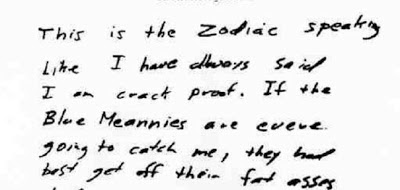 This is the Zodiac speaking
like I have always said
I am crack proof. If the
Blue Meannies are evere
going to catch me, they had
best get off their fat asses